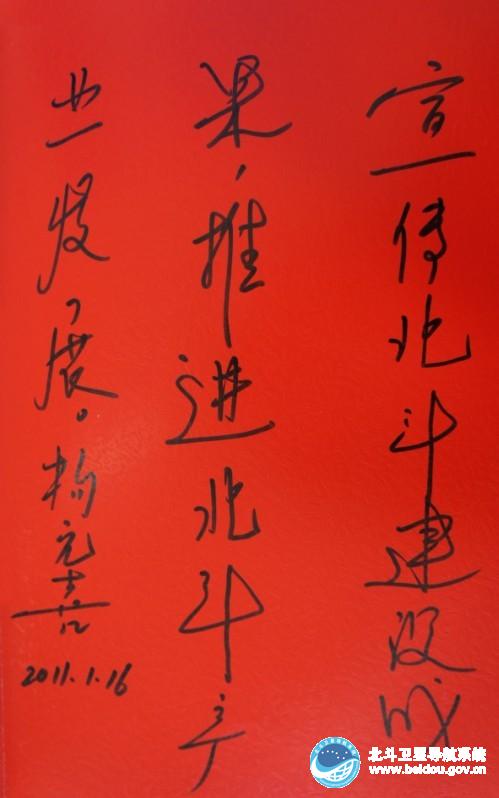 宣传北斗建设成
果,推进北斗产
业发展。杨元喜
2011.1.16
北斗卫星导航系统
www.beidou.gov.cn